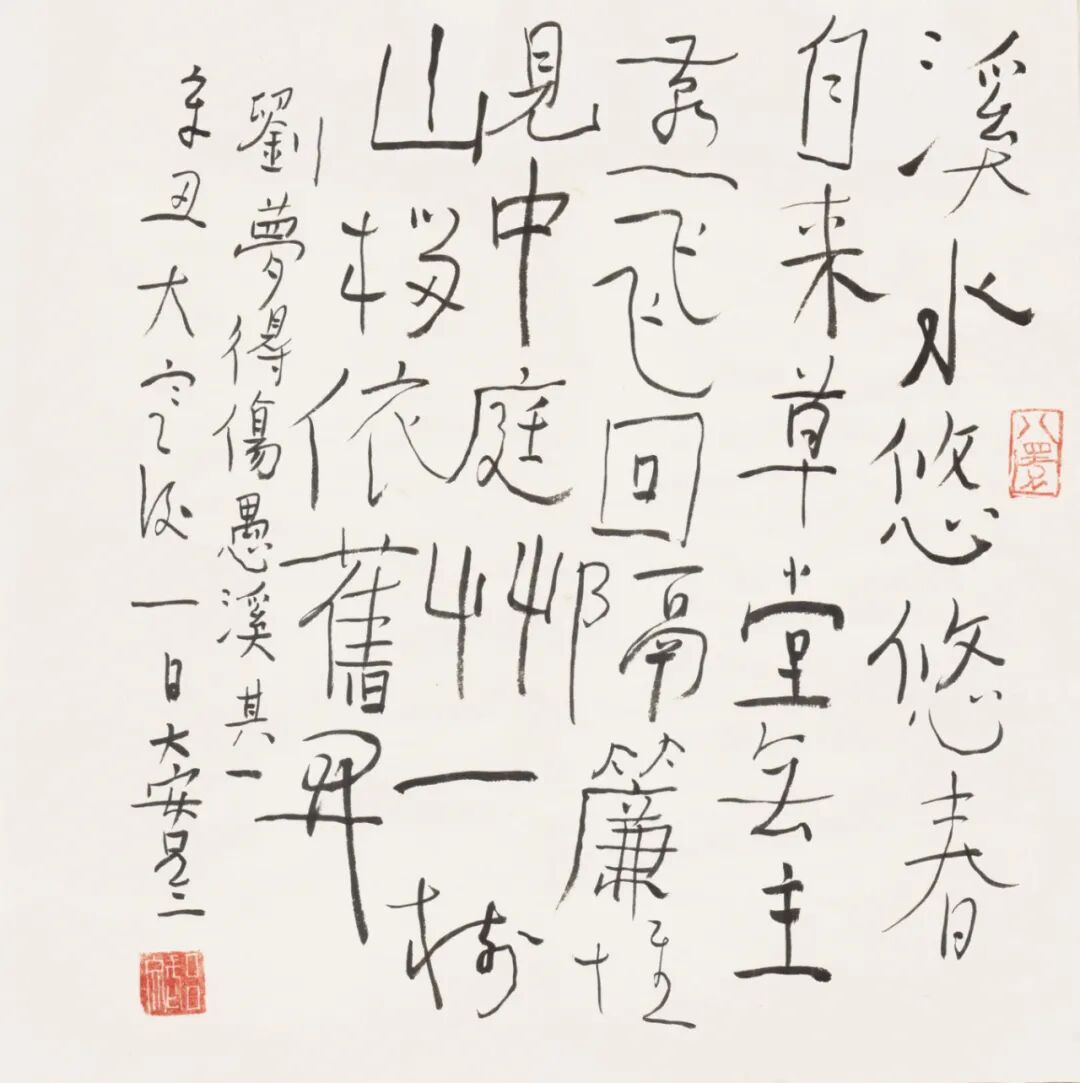 溪水悠悠春
自来草堂無主
燕飞回隔簾惟
見中庭艸一樹
山榴依舊開
劉夢得傷愚溪其一
辛丑大寒後一日大安